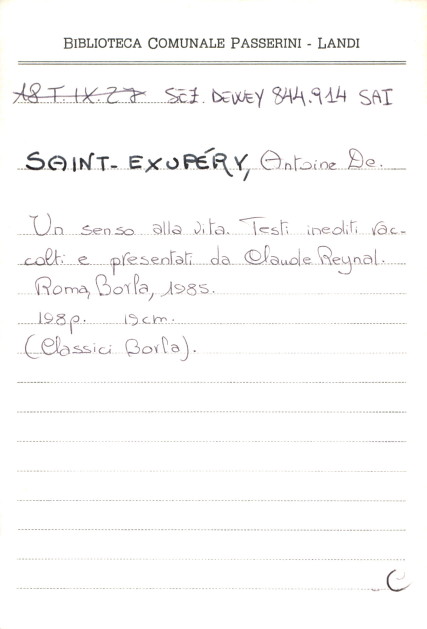 BIBLIOTECA COMUNALE PASSERINI - LANDI
18 T. IX. 27 SEZ. DEWEY 844.914 SAI
SAINT-EXUPÉRY, Antoine De.
Un senso alla vita. Testi inediti rac-
colti e presentati da Claude Reynal.
Roma, Borla, 1985.
198p. 19cm.
(Classici Borla).
C